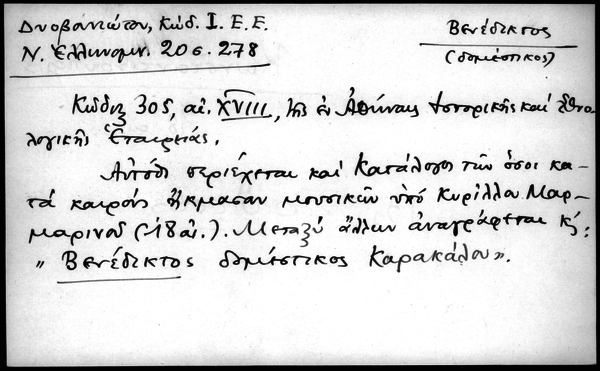 Δυοβουνιώτου, Κώδ. Ι. Ε. Ε.
Ν. Ἑλληνομν. 20 σ. 278
Βενέδικτος
(δομέστικος)
Κῶδιξ 305, αἰ. XVIII, τῆς ἐν Ἀθήναις Ἱστορικῆς καὶ Ἐθνο-
λογικῆς Ἑταιρείας.
Αὐτόθι περιέχεται καὶ Κατάλογος τῶν ὅσοι κα-
τὰ καιροὺς ἤκμασαν μουσικῶν ὑπὸ Κυρίλλου Μαρ-
μαρινοῦ (18 αἰ.). Μεταξὺ ἄλλων ἀναγράφεται κ:
"Βενέδικτος δομέστικος Καρακάλου".